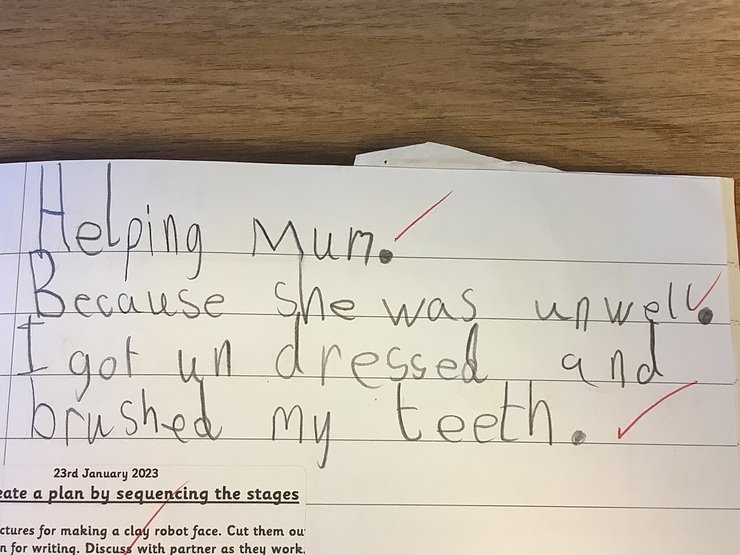 Helping Mum.
Because she was unwell.
I got un dressed and
brushed my teeth.
23rd January 2023
eate a plan by sequencing the stages
ctures for making a clay robot face. Cut them ou
n for writing. Discuss with partner as they work.